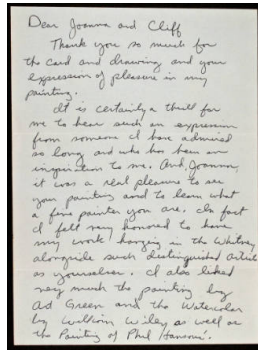 Dear Joanna and Cliff
Thank you so much for
the card and drawing and your
expression of pleasure in my
painting.
It is certainly a thrill for
me to hear such an expression
from someone I have admired
so long and who has been an
inspiration to me. And, Joanna,
it was a real pleasure to see
your painting and to learn what
a fine painter you are. In fact
I felt very honored to have
my work hanging in the Whitney
alongside such distinguished artists
as yourselves. I also liked
very much the painting by
Art Green and the Watercolor
by William Wiley as well as
the Painting of Phil Hansons.